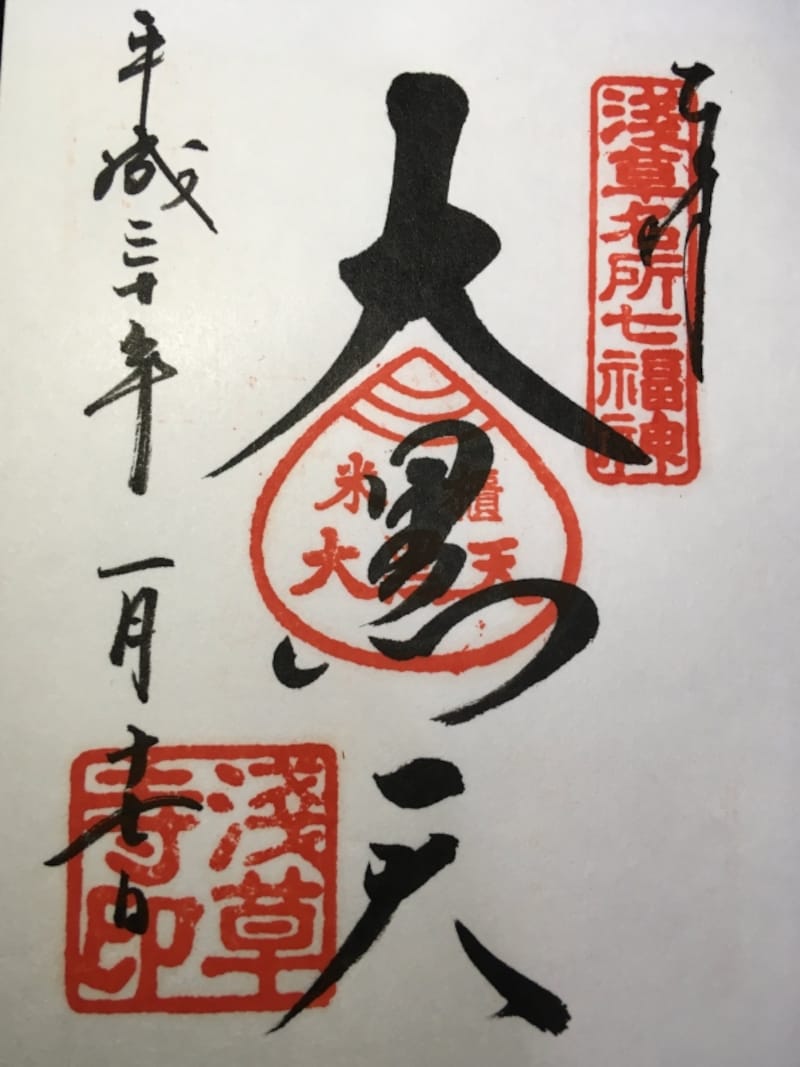 奉拝
淺草名所七福神
大黒天
米櫃
大黒天
平成三十年 一月十七日
淺草
寺印